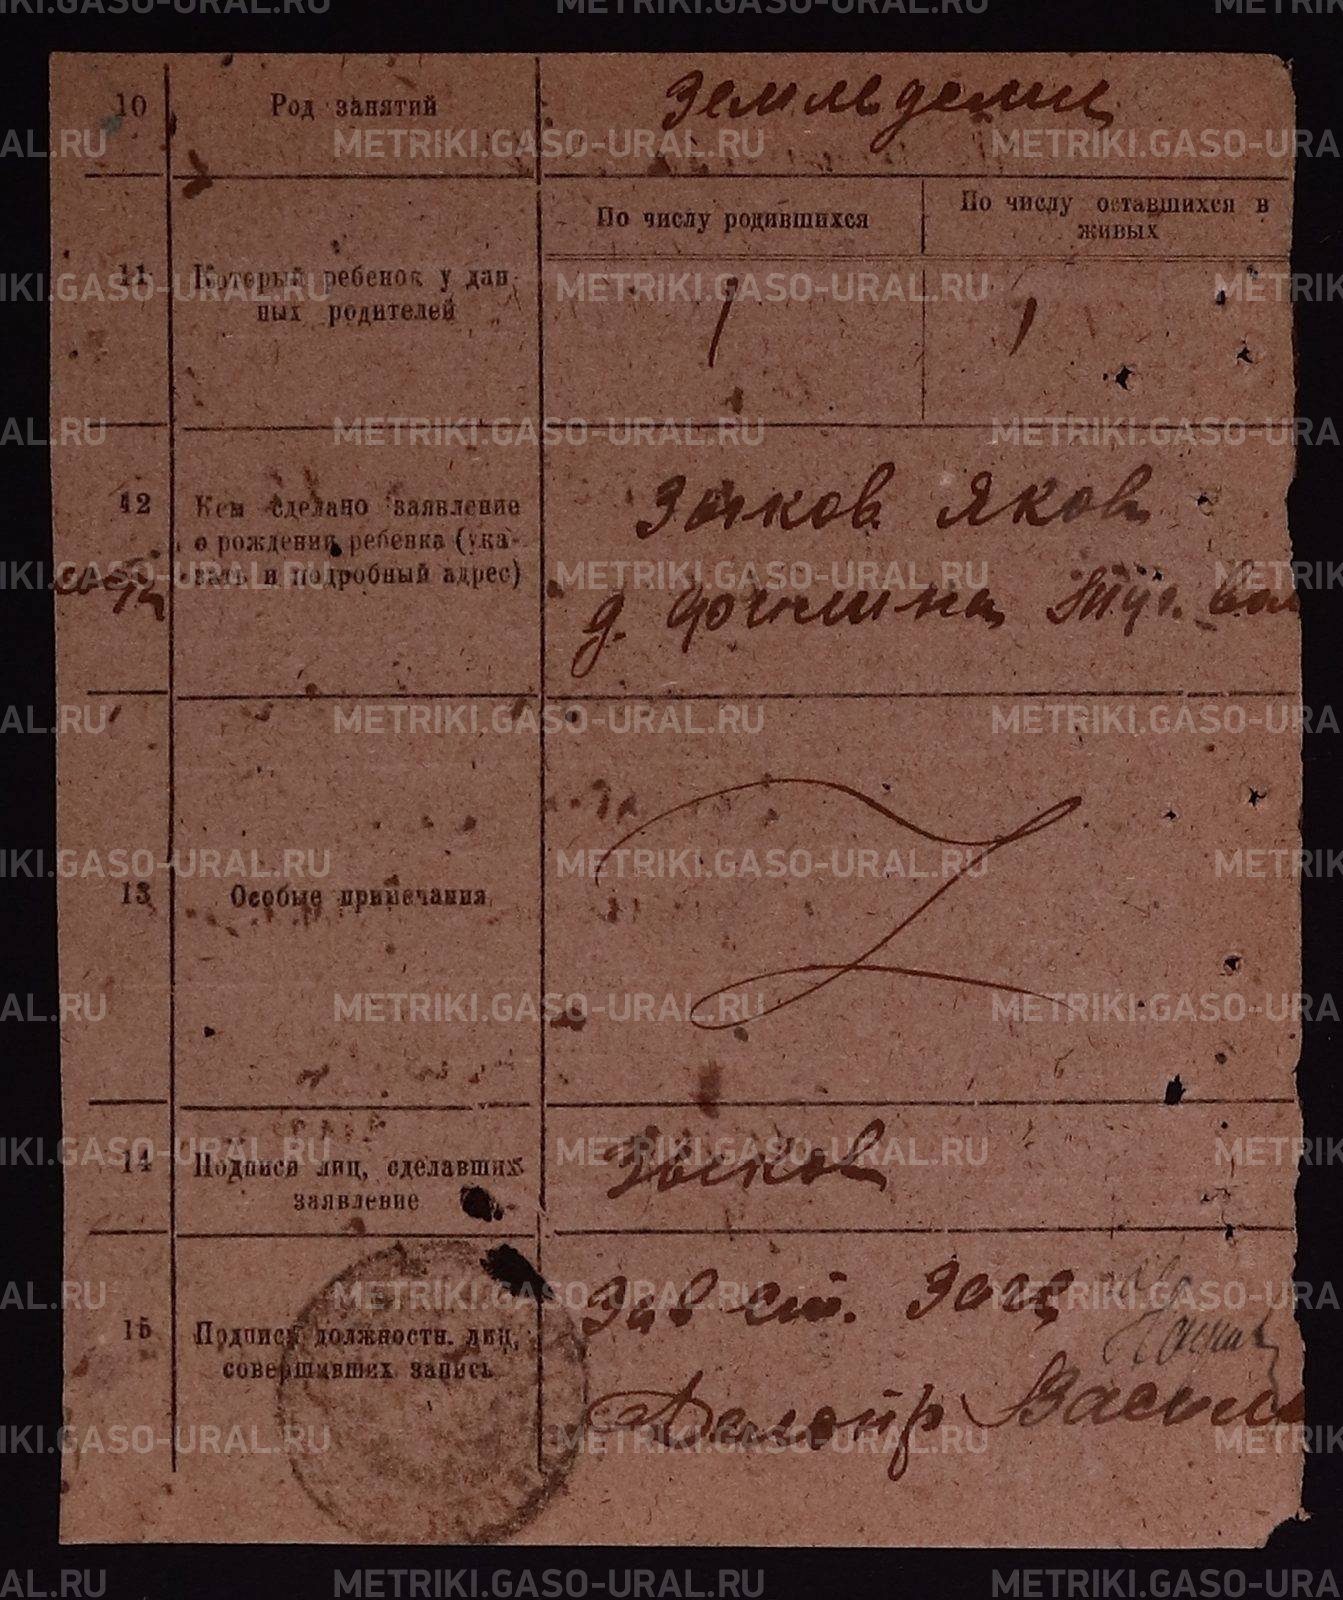 10 Род занятий Земледелец
11 Который ребенок у дан-
ных родителей
По числу родившихся
По числу оставшихся в
живых
1 1
12 Кем сделано заявление
о рождении ребенка (ука-
зать и подробный адрес)
Зыков Яков
д. Филина Туг. вол
13 Особые примечания
14 Подписи лиц, сделавших
заявление
Зыков
15 Подписи должностн. лиц,
совершивших запись
Зав ст. Загс
Делопр Василь
METRIKI.GASO-URAL.RU